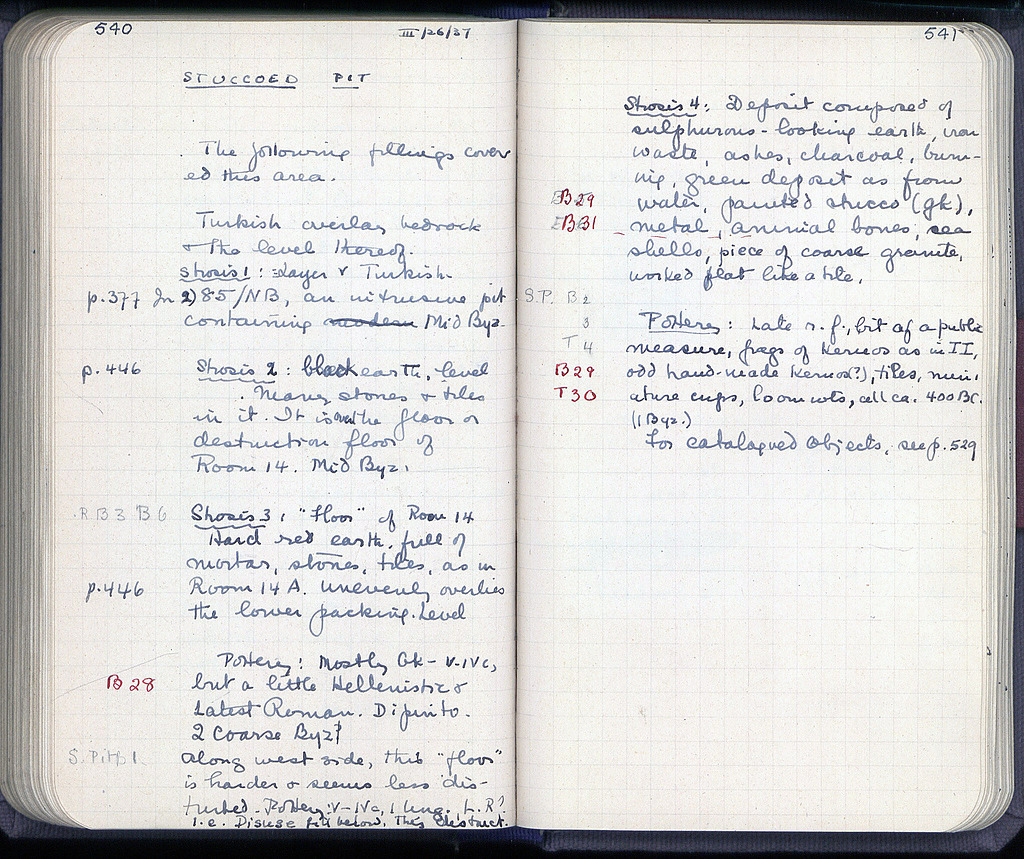 540
III/26/37
STUCCOED PIT
The following fillings cover
ed this area.
Turkish overlay bedrock
+ the level thereof.
Strosis 1 : Layer Turkish
p.377 In 2) 85/NB, an intrusive pit
containing modern Mid Byz.
p.446 Strosis 2 : black earth, level
. Many stones + tiles
in it. It is the floor or
destruction floor of
Room 14. Mid Byz.
R B3 B6 Strosis 3 : "Floor" of Room 14
Hard red earth, full of
mortar, stones, tiles, as in
p.446 Room 14 A. Unevenly overlies
the lower packing. Level
Pottery : Mostly Gk - V-IVc,
B 28 but a little Hellenistic &
Latest Roman. Dipinto.
2 coarse Byz?
S. Pit 1 Along west side, this "floor"
is harder & seems less dis-
turbed. Pottery: V-IVc, 1 L.R?
i.e. Disuse fill below. This
541
Strosis 4 : Deposit composed of
sulphurous-looking earth, iron
waste, ashes, charcoal, burn-
ing, green deposit as from
B 29 water, painted stucco (gk),
B 31 metal, animal bones, sea
shells, piece of coarse granite,
worked flat like a tile.
S.P. B 2
3 Pottery : Late r.f., bit of a public
T 4 measure, frags of Kernos as in II,
B 29 odd hand-made Kernos(?), tiles, mini
T 30 ature cups, loomwts, all ca. 400 BC.
(1 Byz.)
For catalogued objects, see p. 529